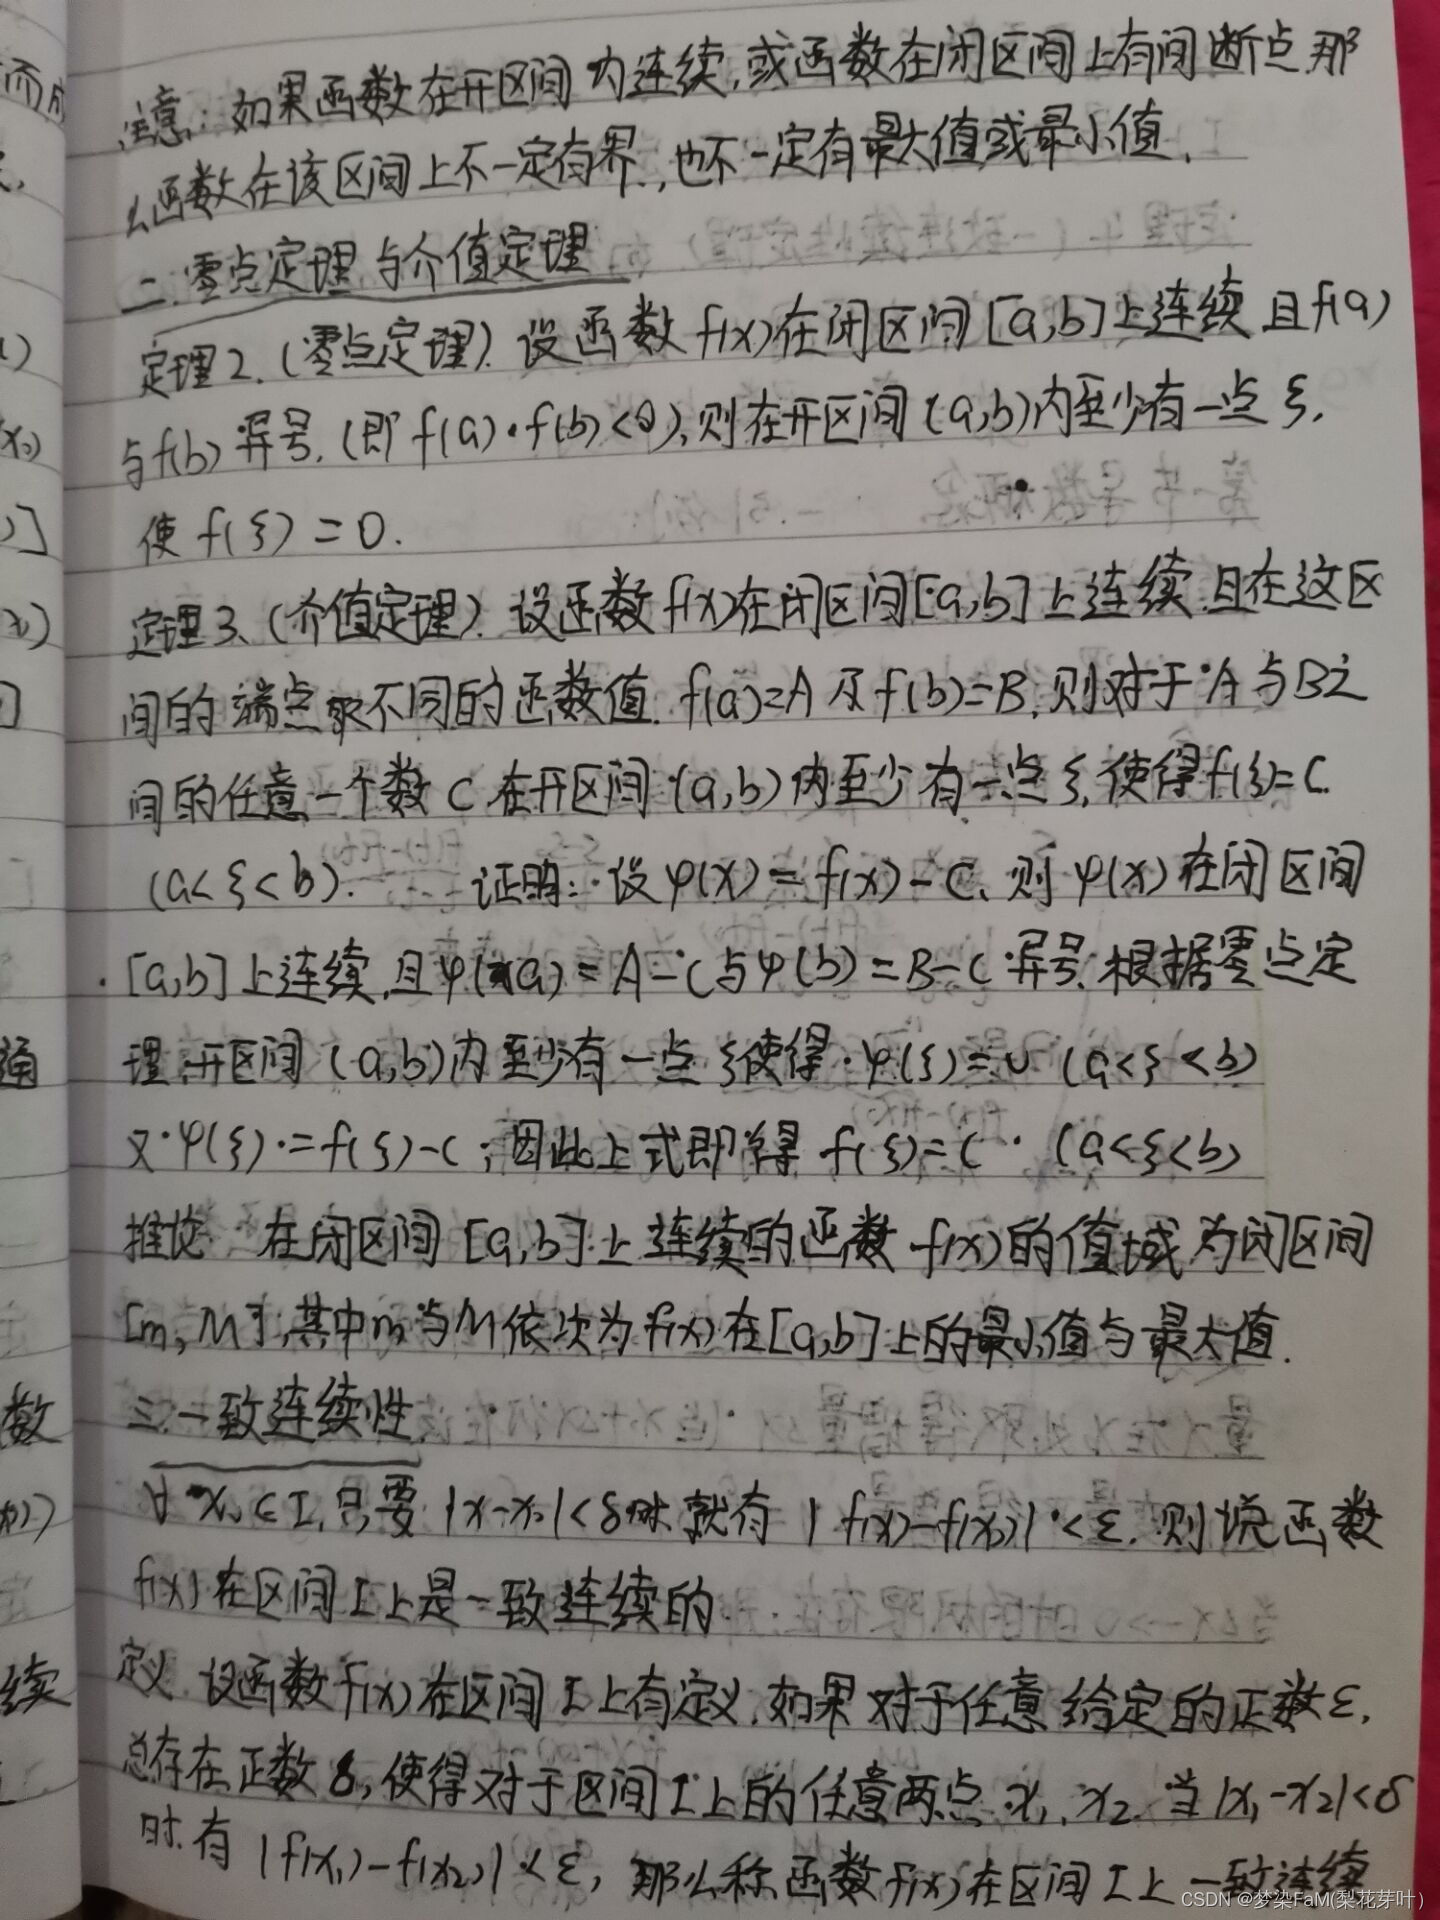 注意：如果函数在开区间内连续，或函数在闭区间上有间断点，那
么函数在该区间上不一定有界，也不一定有最大值或最小值．
二．零点定理与介值定理
定理2．(零点定理)．设函数f(x)在闭区间[a,b]上连续且f(a)
与f(b)异号．(即f(a)·f(b)<0)，则在开区间(a,b)内至少有一点ξ，
使f(ξ)=0．
定理3、(介值定理)．设函数f(x)在闭区间[a,b]上连续．且在这区
间的端点取不同的函数值．f(a)=A及f(b)=B，则对于A与B之
间的任意一个数C．在开区间(a,b)内至少有一点ξ，使得f(ξ)=C．
(a<ξ<b)．证明：设φ(x)=f(x)-C，则φ(x)在闭区间
[a,b]上连续，且φ(a)=A-C与φ(b)=B-C异号．根据零点定
理，开区间(a,b)内至少有一点ξ使得φ(ξ)=0 (a<ξ<b)
又φ(ξ)=f(ξ)-C，因此上式即得f(ξ)=C (a<ξ<b)
推论 在闭区间[a,b]上连续的函数f(x)的值域为闭区间
[m,M]，其中m与M依次为f(x)在[a,b]上的最小值与最大值．
三．一致连续性
∀x₀∈I，只要|x-x₀|<δ时．就有|f(x)-f(x₀)|<ε．则说函数
f(x)在区间I上是一致连续的．
定义．设函数f(x)在区间I上有定义．如果对于任意给定的正数ε，
总存在正数δ，使得对于区间I上的任意两点x₁、x₂．当|x₁-x₂|<δ
时．有|f(x₁)-f(x₂)|<ε，那么称函数f(x)在区间I上一致连续
而成
x₀)
)]
通
数
续
CSDN @梦染FaM(梨花芽叶)